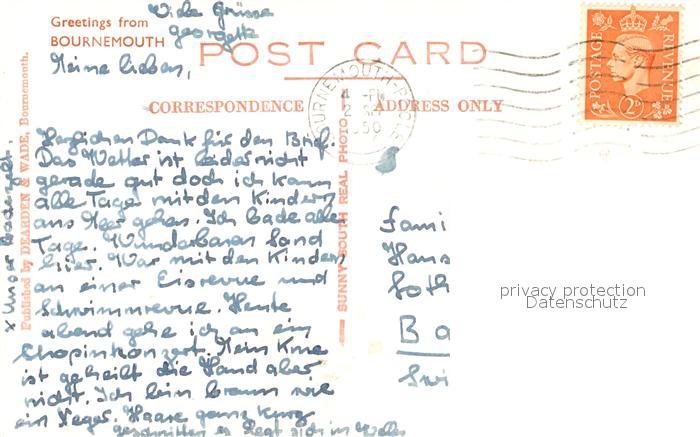 Viele Grüsse
Georgette
Greetings from
BOURNEMOUTH
POST CARD
Meine lieben,
CORRESPONDENCE
ADDRESS ONLY
Herzlichen Dank für den Brief.
Das Wetter ist leider nicht
gerade gut doch ich kann
alle Tage mit den Kindern
ans Meer gehen. Ich bade alle
Tage. Wunderbaren Sand
hier. War mit den Kindern
an einer Eisrevue und
Schwimmrevue. Heute
abend gehe ich an ein
Chopinkonzert. Mein Knie
ist geheilt die Hand aber
nicht. Ich bin braun wie
ein Neger. Haare ganz kurz
geschnitten es legt sich in Wellen
x Unser Badezelt.
Published by DEARDEN & WADE, Bournemouth.
SUNNY SOUTH REAL PHOTO
BOURNEMOUTH-POOLE
1950
POSTAGE
REVENUE
2D
Fami
Hans
Goth
Ba
Swi
privacy protection
Datenschutz